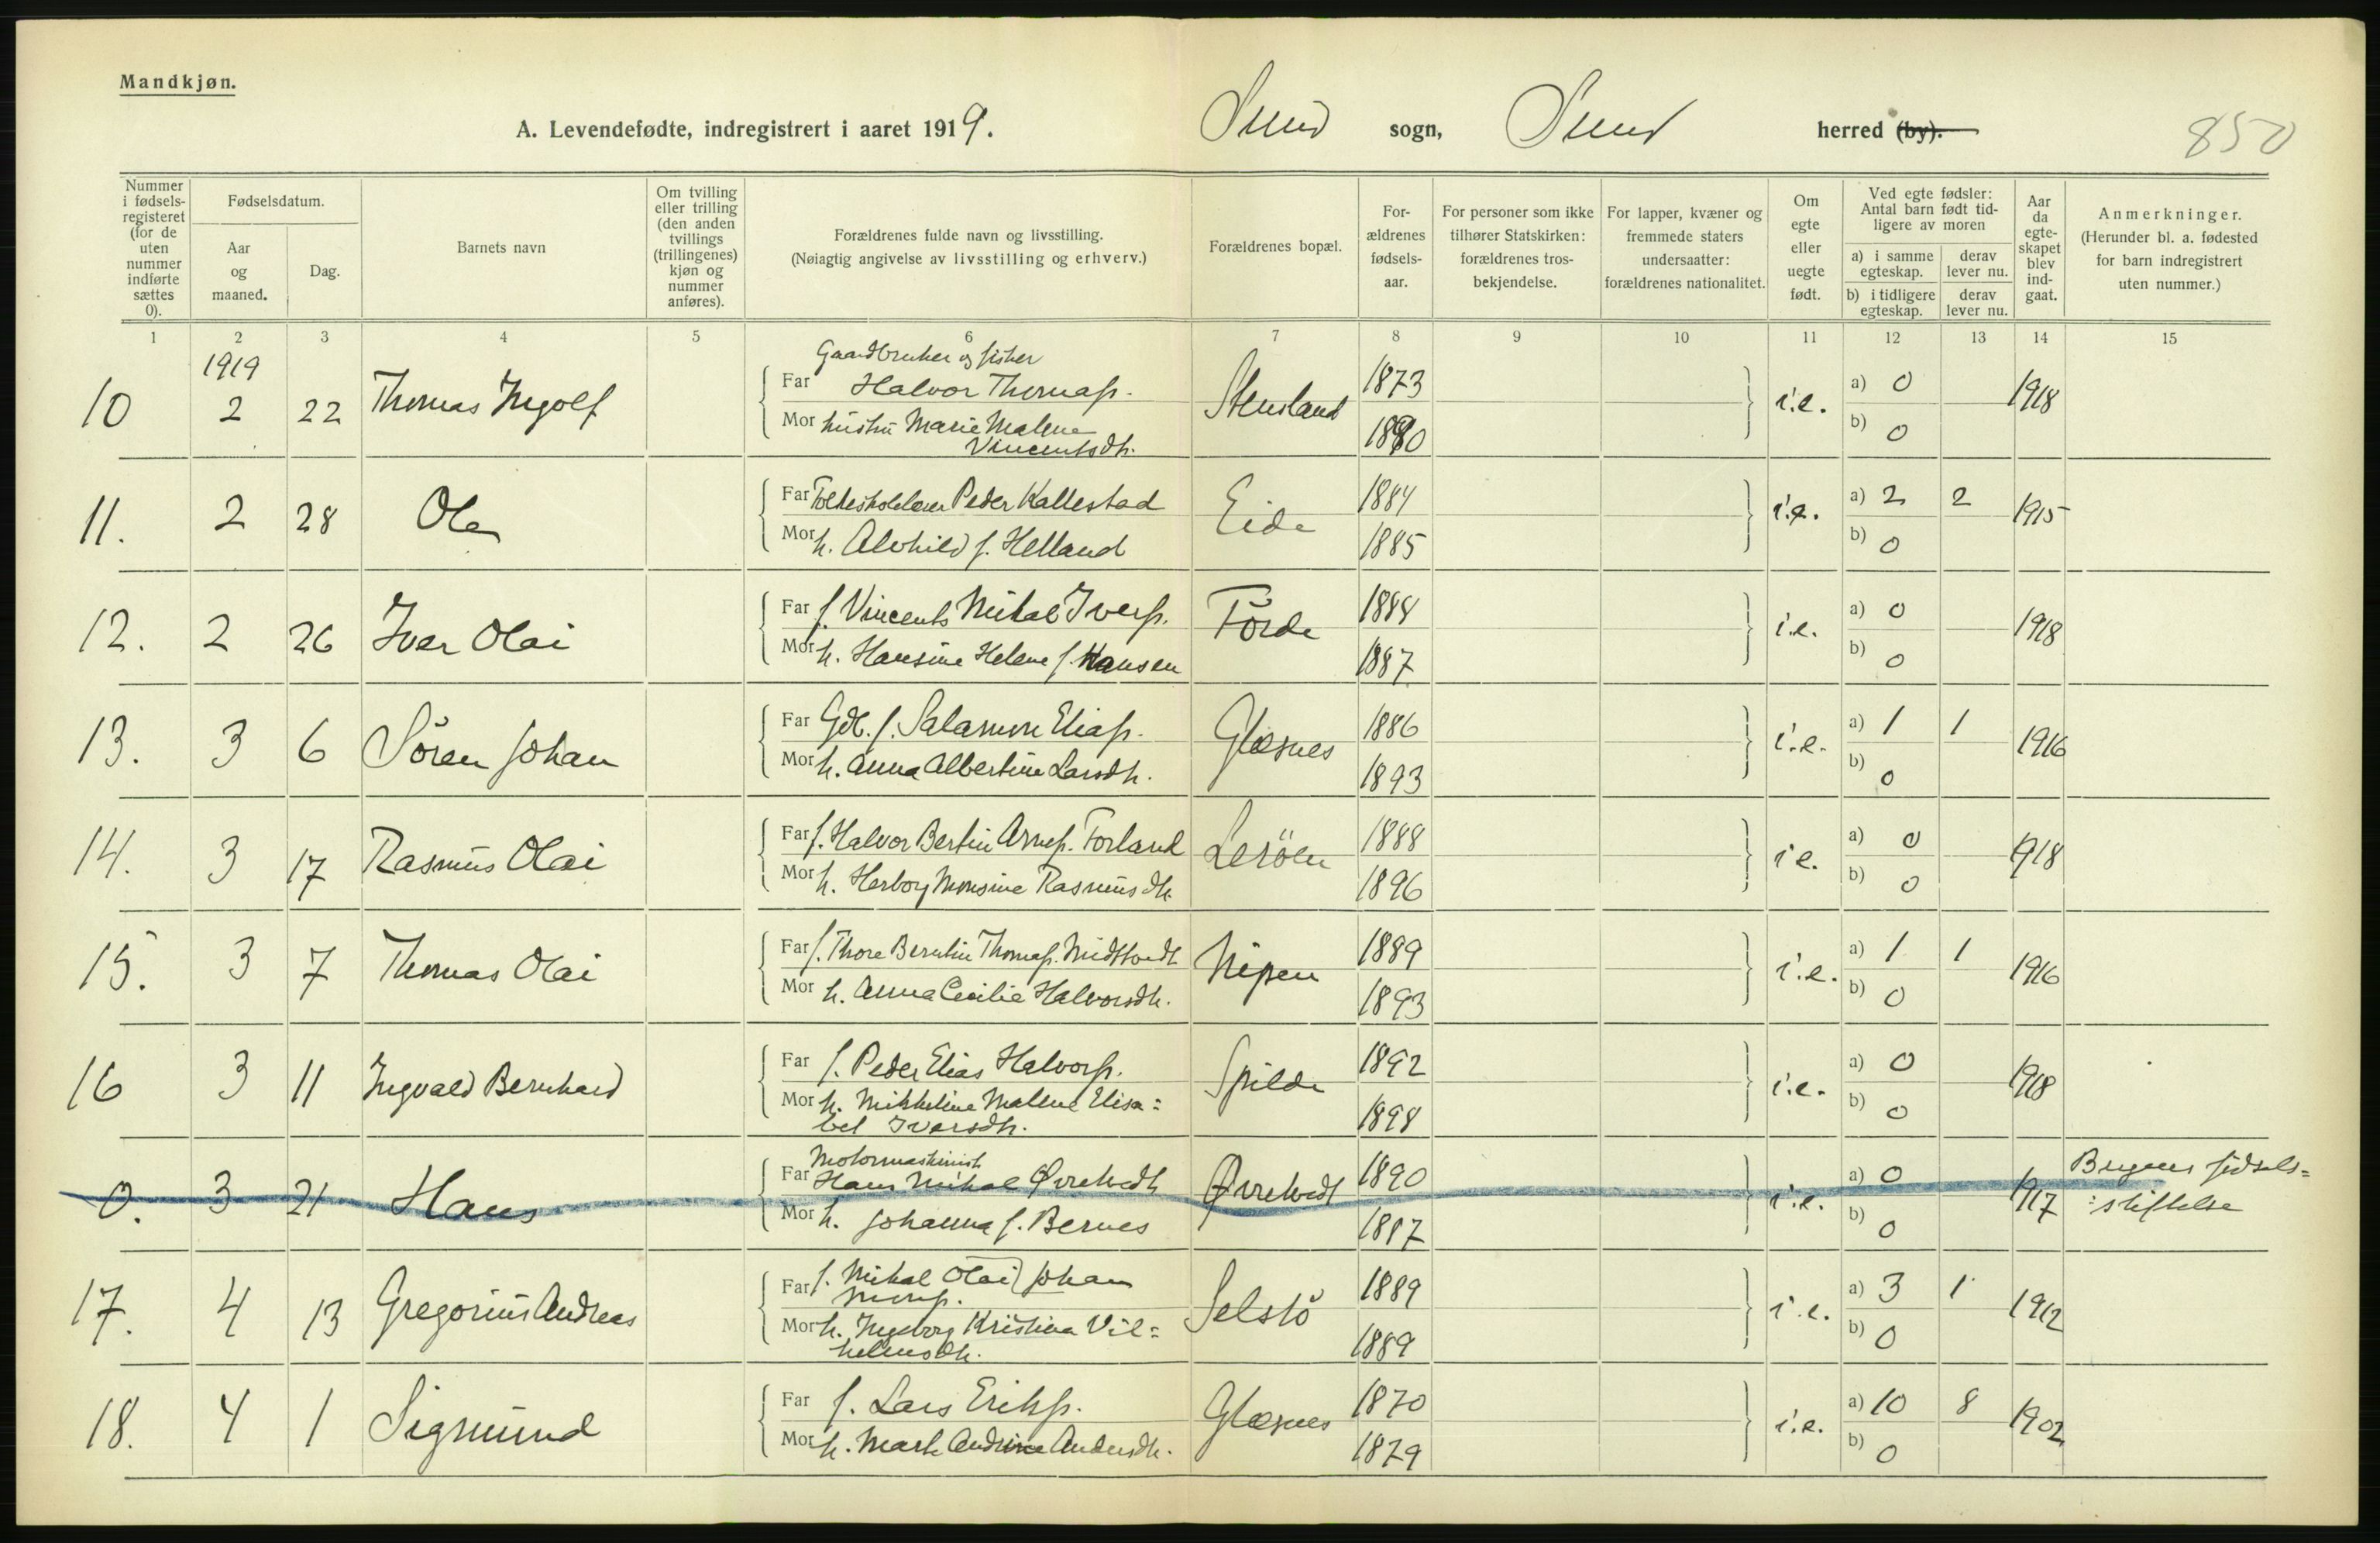 Mandkjøn.
A. Levendefødte, indregistrert i aaret 1919. Sund sogn, Sund herred (by).
850
Nummer i fødselsregisteret (for de uten nummer indførte sættes 0).
Fødselsdatum.
Aar og maaned.
Dag.
Barnets navn
Om tvilling eller trilling (den anden tvillings (trillingenes) kjøn og nummer anføres).
Forældrenes fulde navn og livsstilling.
(Nøiagtig angivelse av livsstilling og erhverv.)
Forældrenes bopæl.
Forældrenes fødselsaar.
For personer som ikke tilhører Statskirken: forældrenes trosbekjendelse.
For lapper, kvæner og fremmede staters undersaatter: forældrenes nationalitet.
Om egte eller uegte født.
Ved egte fødsler: Antal barn født tidligere av moren
a) i samme egteskap. derav lever nu.
b) i tidligere egteskap. derav lever nu.
Aar da egteskapet blev indgaat.
Anmerkninger.
(Herunder bl. a. fødested for barn indregistrert uten nummer.)
1 2 3 4 5 6 7 8 9 10 11 12 13 14 15
1919
Gaardbruker og fisker
10 2 22 Thomas Ingolf Far Halvor Thomass. Stensland 1873 i.e. a) 0 1918
Mor hustru Marie Malene 1880 b) 0
Vincentsdtr.
11. 2 28 Ola Far Folkeskolelærer Peder Kallestad Eide 1884 i.e. a) 2 2 1915
Mor h. Alvhild f. Helland 1885 b) 0
12. 2 26 Iver Olai Far f. Vincents Mikal Ivers. Förde 1888 i.e. a) 0 1918
Mor h. Hansine Helene f. Hansen 1887 b) 0
13. 3 6 Sören Johan Far Gdb. f. Salamon Elias. Glæsnes 1886 i.e. a) 1 1 1916
Mor h. Anna Albertine Larsdtr. 1893 b) 0
14. 3 17 Rasmus Olai Far f. Halvor Bertin Arnes. Forland Leröen 1888 i e. a) 0 1918
Mor h. Herborg Monsine Rasmusdtr. 1896 b) 0
15. 3 7 Thomas Olai Far f. Thore Berntin Thomas. Midttvedt Nipen 1889 i.e. a) 1 1 1916
Mor h. Anna Cecilie Halvorsdtr. 1893 b) 0
16 3 11 Ingvald Bernhard Far f. Peder Elias Halvors. Spilde 1892 i.e. a) 0 1918
Mor h. Mikkeline Malene Elisa= 1898 b) 0
bet Iversdtr.
Motormaskinist
0. 3 21 Hans Far Hans Mikal Øvretvedt Øvretvedt 1890 i.e. a) 0 1917 Bergens fødsels=
Mor h. Johanna f. Bernes 1887 b) 0 =stiftelse
17. 4 13 Gregorius Andreas Far f. Mikal Olai Johan Selstö 1889 i e. a) 3 1 1912
Mons.
Mor h. Ingeborg Kristina Vil= 1889 b) 0
helmsdtr.
18. 4 1 Sigmund Far f. Lars Eriks. Glæsnes 1870 i.e. a) 10 8 1902
Mor h. Andrine Andersdtr. 1879 b) 0